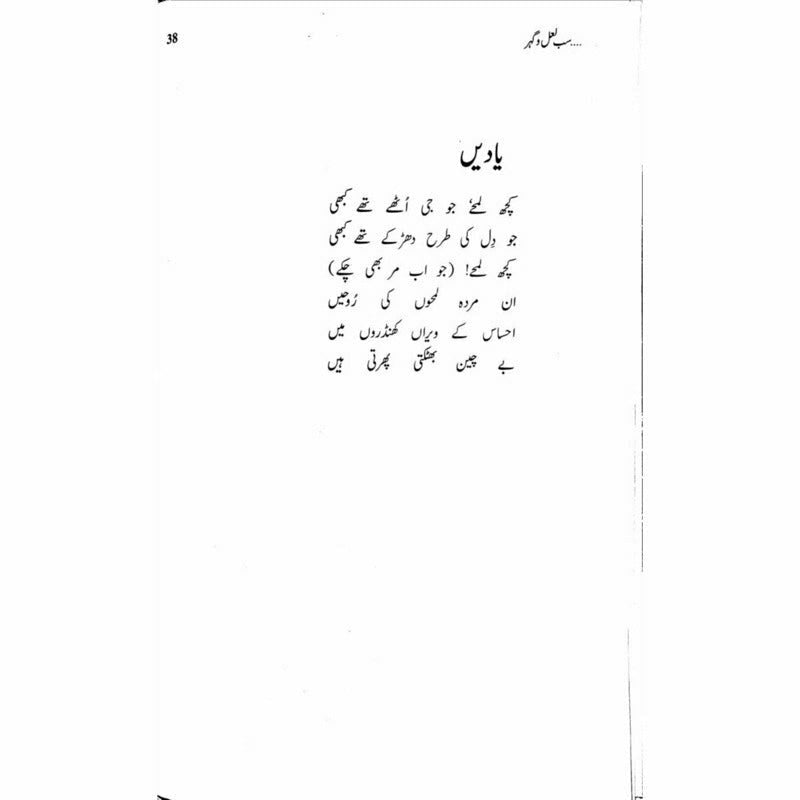 ....سب لعل و گہر
38
یادیں
کچھ لمحے، جو جی اُٹھے تھے کبھی
جو دِل کی طرح دھڑکے تھے کبھی
کچھ لمحے! (جو اب مر بھی چکے)
ان مردہ لمحوں کی رُوحیں
احساس کے ویراں کھنڈروں میں
بے چین بھٹکتی پھرتی ہیں